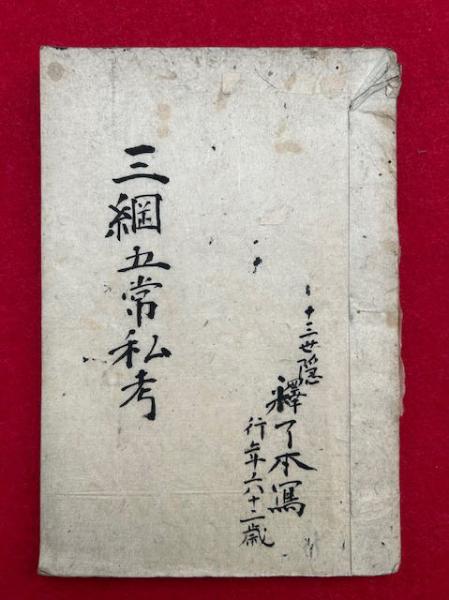 十三世隠
釋了本寫
行年六十二歳
三綱五常私考